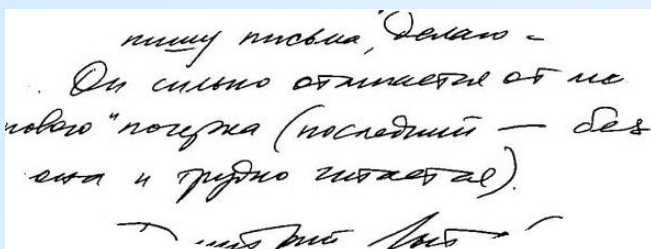 пишу письма, делаю -
Он сильно отличается от
нового" почерка (последний — без
и трудно читается).